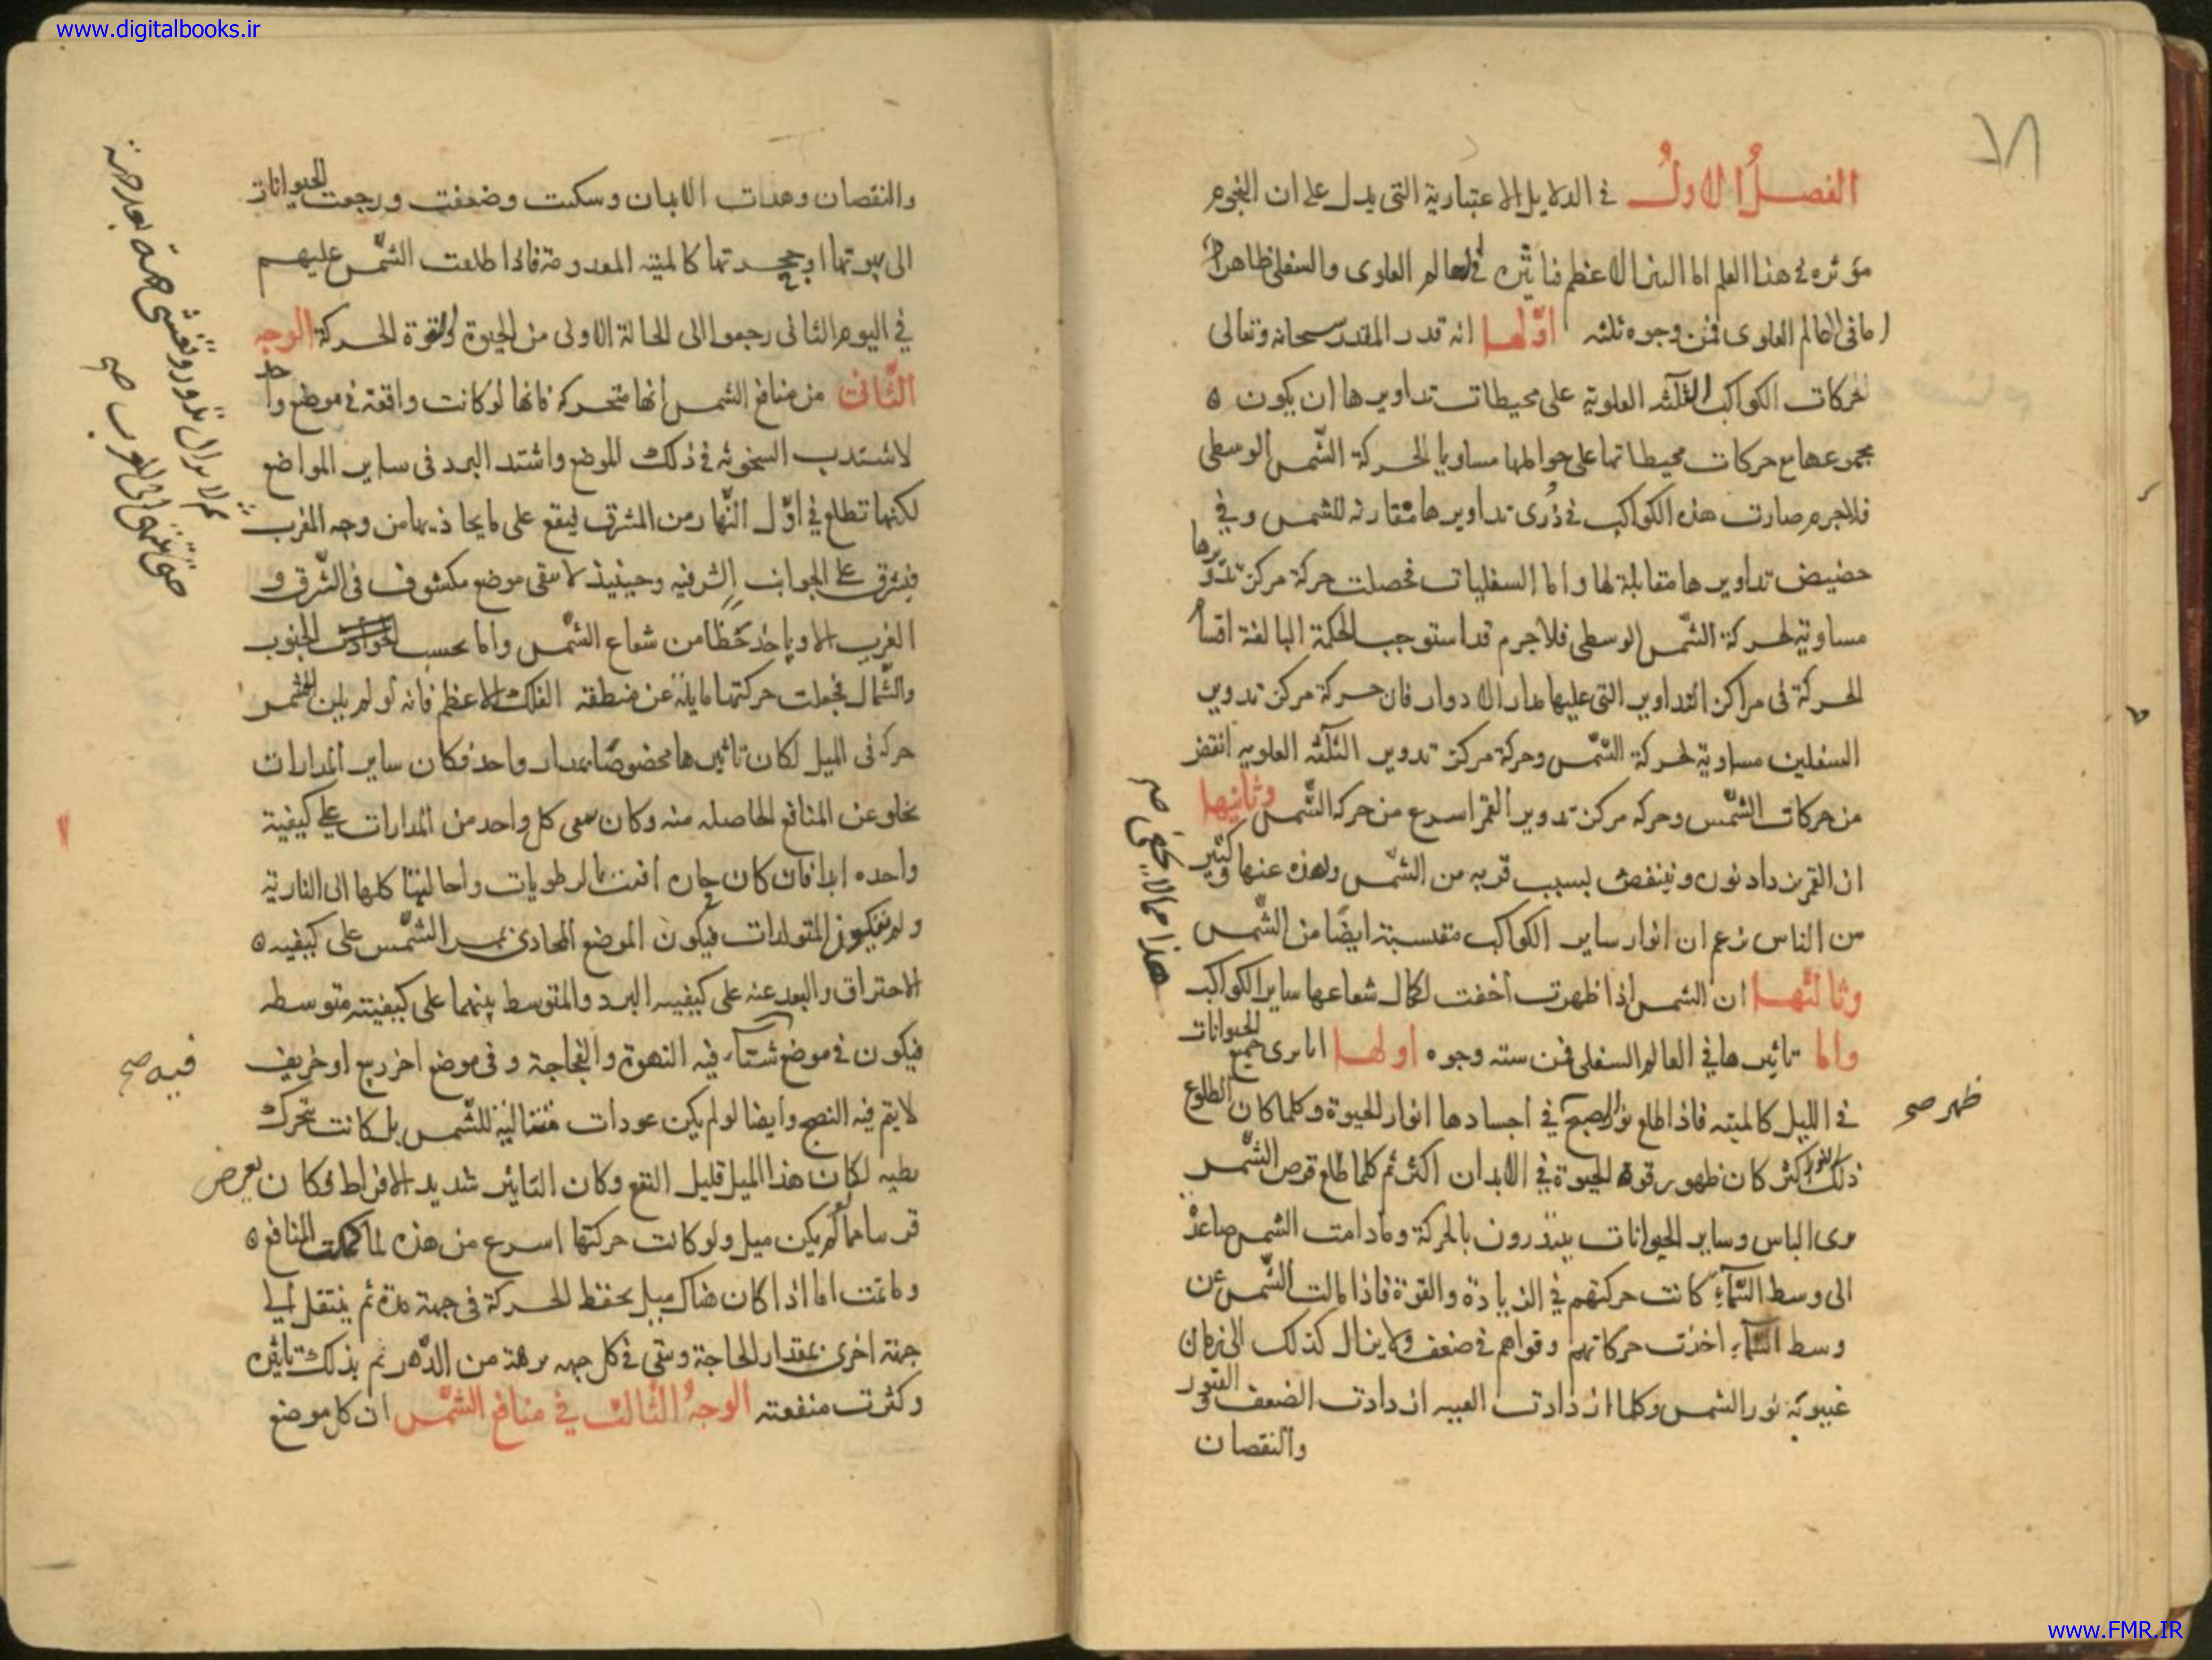 www.digitalbooks.ir
الفصل الاول في الدلايل الاعتبارية التي يدل على ان النجوم
مؤثره في هذا العلم اما النير الاعظم فتاثيره في العالم العلوى والسفلى ظاهر
اما فى العالم العلوى فمن وجوه ثلثه اولها انه قدر المقدر سبحانه وتعالى
لحركات الكواكب الثلثه العلويه على محيطات تداويرها ان يكون
مجموعها مع حركات محيطاتها على حواملها مساويا لحركة الشمس الوسطى
فلاجرم صارت هذه الكواكب في ذرى تداويرها مقارنه للشمس وفي
حضيض تداويرها مقابلة لها واما السفليات فحصلت حركة مركز تدويرها
مساوية لحركة الشمس الوسطى فلاجرم قد استوجب الحكمة البالغة اقسام
الحركة فى مراكز التداوير التى عليها مدار الادوار فان حركة مركز تدوير
السفلين مساوية لحركة الشمس وحركة مركز تدوير الثلثه العلويه انقض
من حركات الشمس وحركه مركز تدوير القمر اسرع من حركه الشمس وثانيها
ان القمر يزداد نوره وينقص بسبب قربه من الشمس وبعده عنها وكثير
من الناس زعم ان انوار ساير الكواكب مقتبسة ايضا من الشمس
هذا مما لا يخفى صح
وثالثها ان الشمس اذا ظهرت اخفت لكمال شعاعها ساير الكواكب
واما تاثيرها في العالم السفلى فمن سته وجوه اولها انا نرى جميع الحيوانات
في الليل كالميته فاذا طلع نور الصبح في اجسادها انوار الحيوة وكلما كان الطلوع
ظهر صح
ذلك النور اكثر كان ظهور قوة الحيوة في الابدان اكثر ثم كلما طلع قرص الشمس
نرى الناس وساير الحيوانات يبتدرون بالحركة ومادامت الشمس صاعدة
الى وسط السماء كانت حركتهم في الزيادة والقوة فاذا مالت الشمس عن
وسط السماء اخذت حركاتهم وقواهم في ضعف ولا يزال كذلك الى زمان
غيبوبه نور الشمس وكلما ازدادت الغيبه ازدادت الضعف والفتور
والنقصان
والنقصان وهدات الابدان وسكنت وضعفت ورجعت الحيوانات
الى بيوتها او جحرتها كالميته المعدومة فاذا طلعت الشمس عليهم
في اليوم الثانى رجعوا الى الحالة الاولى من الحيوة والقوة الحركة الوجه
الثانى من منافع الشمس انها متحركه فانها لو كانت واقفة في موضع واحد
لاشتدت السخونه في ذلك الموضع واشتد البرد فى ساير المواضع
لكنها تطلع في اول النهار من المشرق فيقع على ما يحاذيها من وجه المغرب
ثم لا يزال تدور وتغشى جهة بعد جهة
حتى تنتهى الى المغرب صح
فيشرق على الجوانب الشرقيه وحينيذ لا يبقى موضع مكشوف فى الشرق و
الغرب الا وياخذ حظا من شعاع الشمس واما بحسب الجنوب
والشمال فجعلت حركتها مايلة عن منطقه الفلك الاعظم فانه لو لم يكن للشمس
حركه فى الميل لكان تاثيرها مخصوصا بمدار واحد فكان ساير المدارات
يخلو عن المنافع الحاصله منه وكان يبقى كل واحد من المدارات على كيفية
واحده ابدا فان كان حاره افنت الرطويات واحالتها كلها الى النارية
ولم يتكون المتولدات فيكون الموضع المحاذى بممر الشمس على كيفيه
الاحتراق والبعد عنه على كيفيه البرد والمتوسط بينهما على كيفية متوسطه
فيكون في موضع شتاء فيه النهوة والفجاجة وفى موضع اخر ربيع او خريف
فيه صح
لا يتم فيه النضج وايضا لو لم يكن عودات متتالية للشمس بل كانت تتحرك
بطيه لكان هذا الميل قليل النفع وكان التاثير شديد الافراط وكان يعرض
قريبا مما لم يكن ميل ولو كانت حركتها اسرع من هذه لما كملت المنافع
وما تمت اما اذا كان هناك ميل يحفظ الحركة فى جهة مدة ثم ينتقل الى
جهة اخرى بمقدار الحاجة ويبقى في كل جهه برهة من الدهر تم بذلك تاثيره
وكثرت منفعته الوجه الثالث في منافع الشمس ان كل موضع
www.FMR.IR